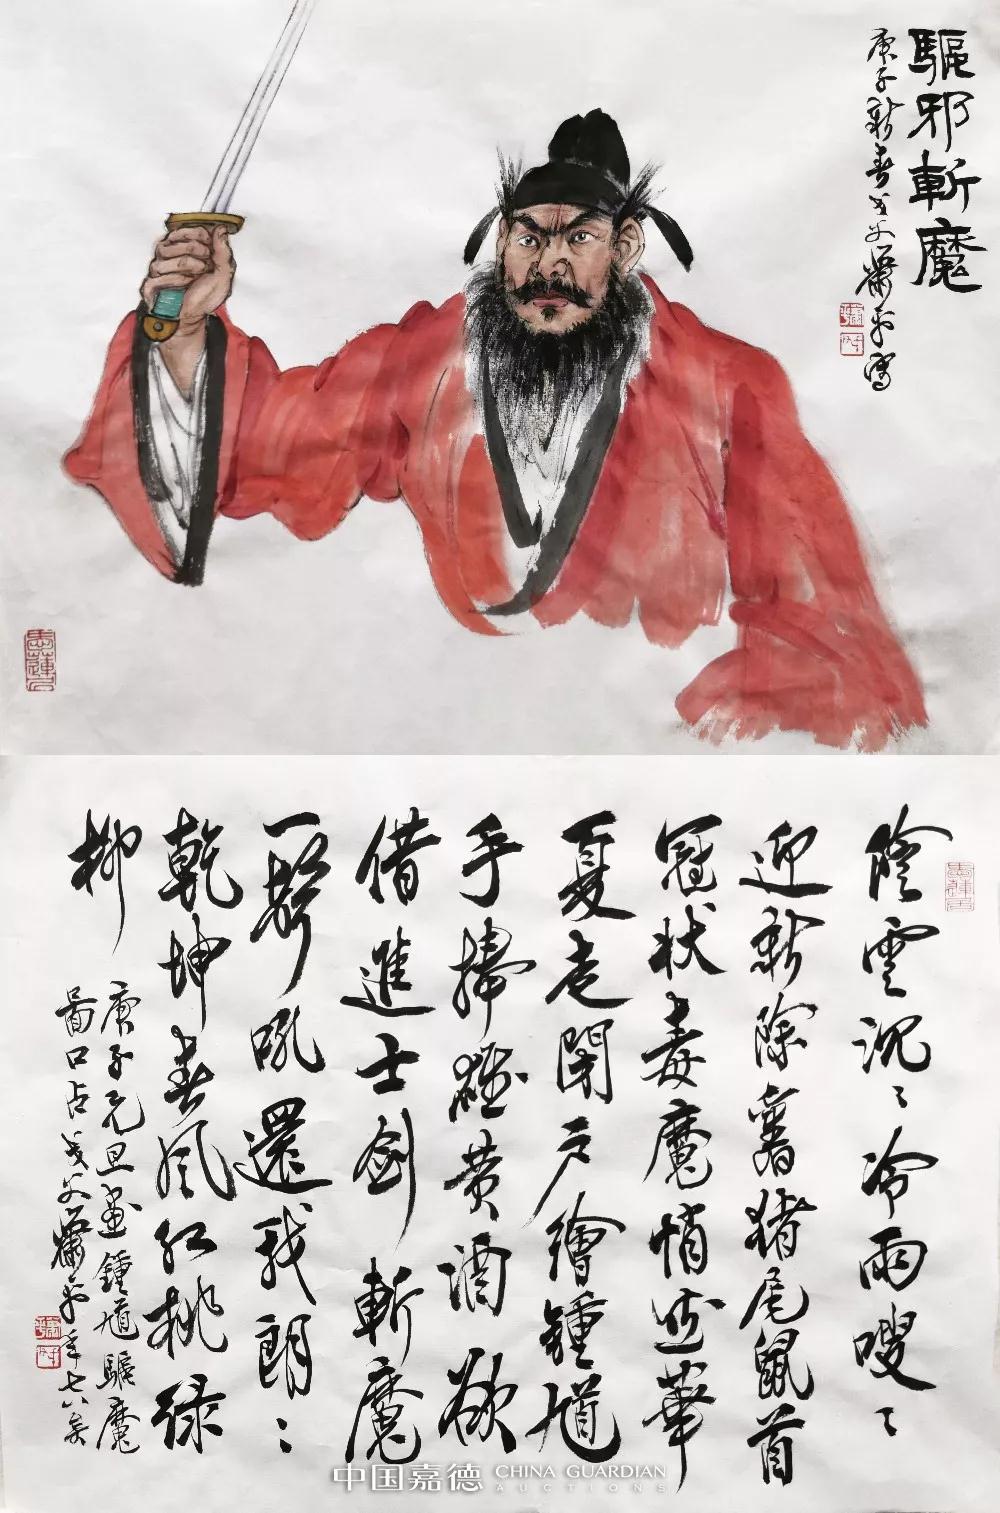 驅邪斬魔
庚子新春 寫
陰雲沉〻冷雨嗖〻
迎新除舊猪尾鼠首
冠状毒魔悄 華
夏走閉户繪鍾馗
手捧雄黄酒欲
借進士剑斬魔
一聲吼還我朗〻
乾坤春風红桃绿
柳
庚子元旦畫鍾馗驅魔
圖口占 年七八矣
中国嘉德 CHINA GUARDIAN
AUCTIONS